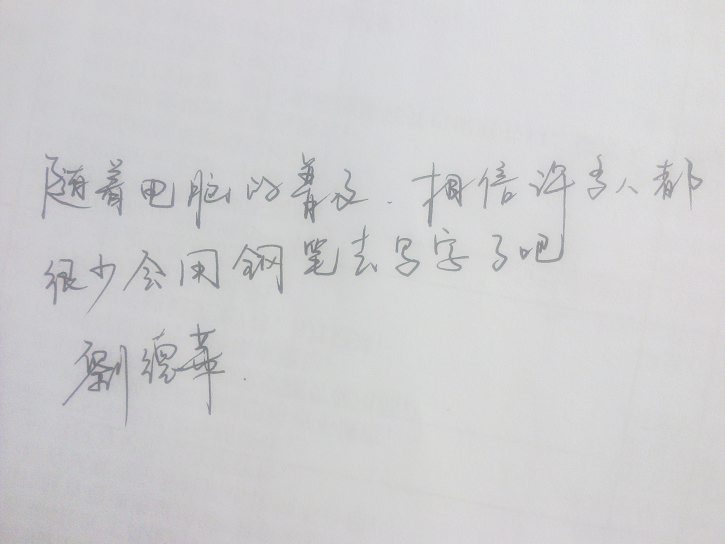 随着电脑的普及.相信许多人都
很少会用钢笔去写字了吧
劉德華.